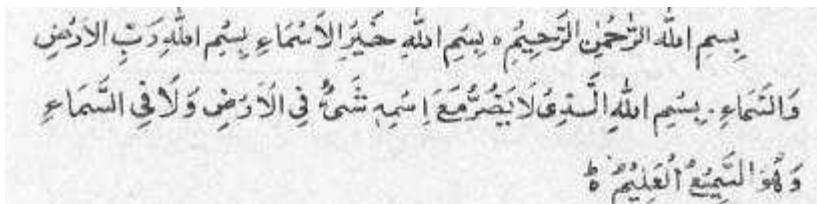 بِسمِ اللهِ الرَّحْمٰنِ الرَّحِيْمِ ه بِسْمِ اللهِ خَيْرِ الْاَسْمَاءِ بِسْمِ اللهِ رَبِّ الْاَرْضِ
وَالسَّمَاءِ ۔ بِسْمِ اللهِ الَّذِىْ لَا يَضُرُّ مَعَ اِسْمِهٖ شَىْءٌ فِى الْاَرْضِ وَلَا فِى السَّمَاءِ
وَهُوَ السَّمِيْعُ الْعَلِيْمُ ط